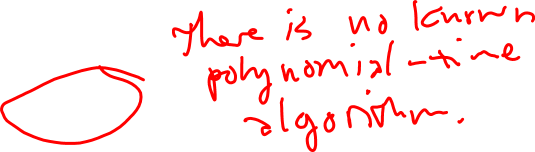 There is no known
polynomial-time
algorithm.